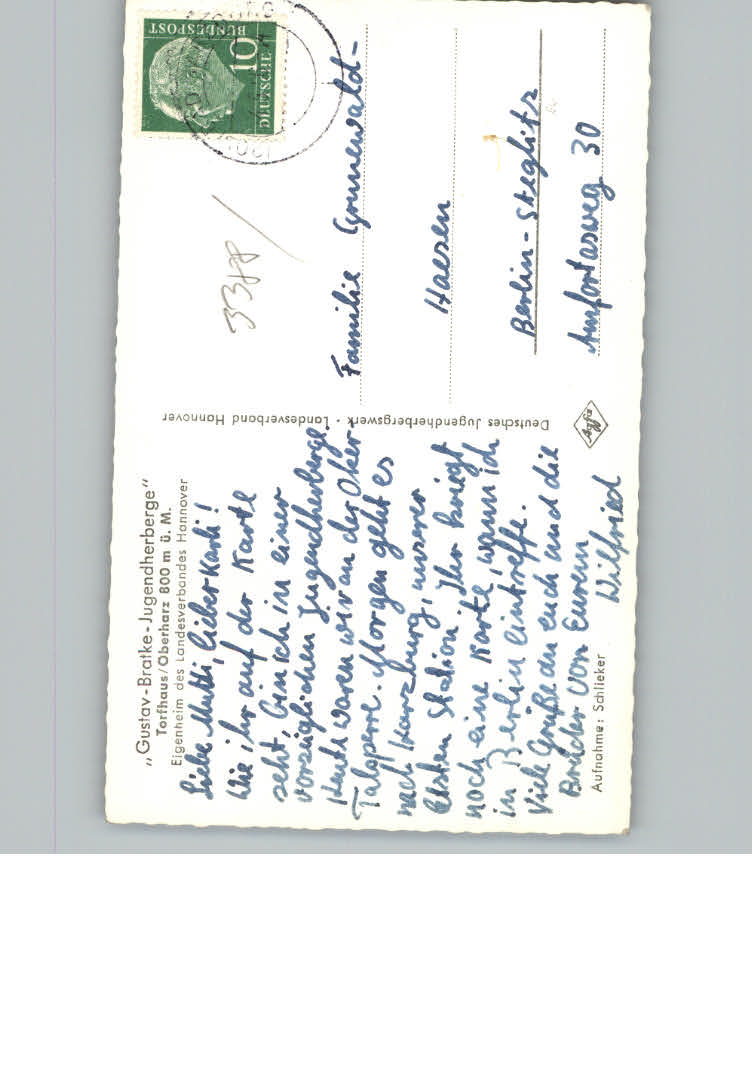 „Gustav-Bratke-Jugendherberge“
Torfhaus/Oberharz 800 m ü. M.
Eigenheim des Landesverbandes Hannover
Liebe Mutti, lieber Karli!
Wie ihr auf der Karte
seht, bin ich in einer
vorzüglichen Jugendherberge.
Heute waren wir an der Oker-
Talsperre. Morgen geht es
nach Harzburg, unserer
letzten Station. Ihr kriegt
noch eine Karte, wann ich
in Berlin eintreffe.
Viele Grüße an euch und die
Brüder von Eurem
Wilfried
Aufnahme: Schlieker
Deutsches Jugendherbergswerk · Landesverband Hannover
Agfa
DEUTSCHE
BUNDESPOST
10
3388
Familie Grunewald-
Haesen
Berlin-Steglitz
Amfortasweg 30